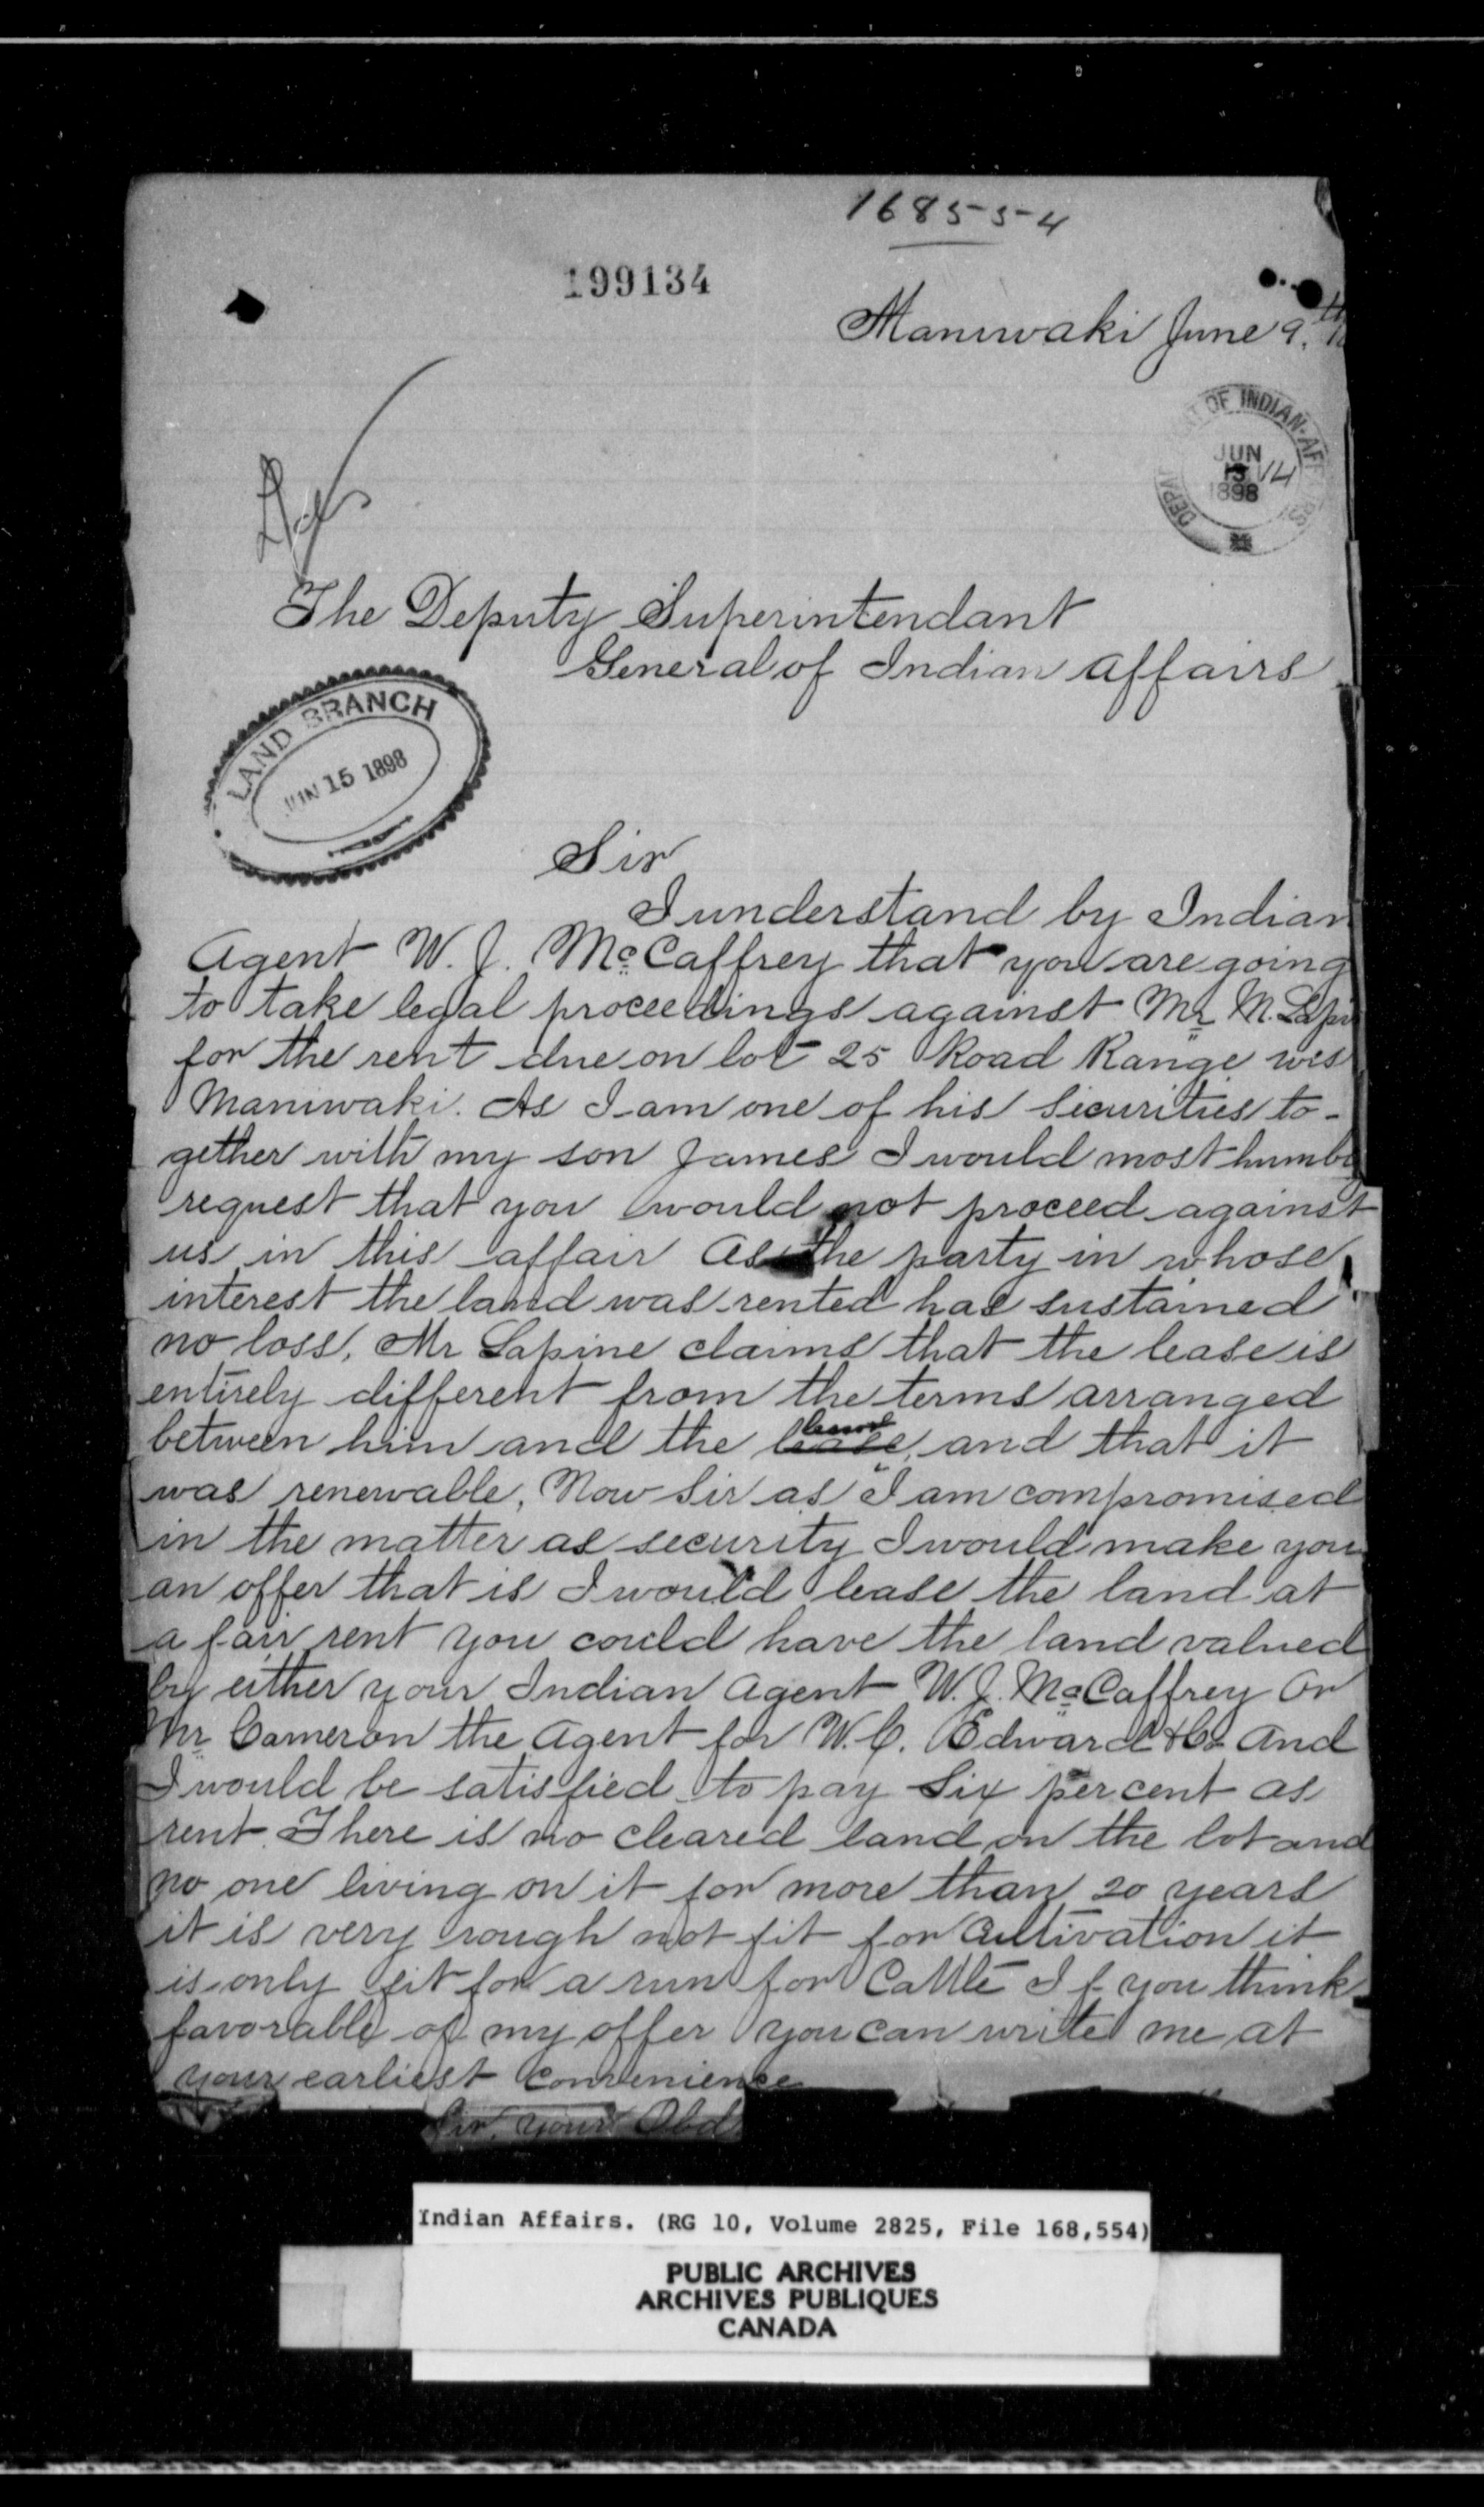 168554
199134
Maniwaki June 9. th
DEPARTMENT OF INDIAN AFFAIRS
JUN
13 14
1898
The Deputy Superintendant
General of Indian affairs
LAND BRANCH
JUN 15 1898
Sir
I understand by Indian
Agent W. J. McCaffrey that you are going
to take legal proceedings against Mr M. Lapi
for the rent due on lot 25 Road Range wes
Maniwaki. As I am one of his Securities to-
gether with my son James I would most humbl
request that you would not proceed against
us in this affair as the party in whose
interest the land was rented has sustained
no loss, Mr Lapine claims that the lease is
entirely different from the terms arranged
between him and the band, and that it
was renewable, Now Sir as I am compromised
in the matter as security I would make you
an offer that is I would lease the land at
a fair rent you could have the land valued
by either your Indian Agent W. J. McCaffrey or
Mr Cameron the Agent for W. C. Edward & Co and
I would be satisfied to pay Six per cent as
rent There is no cleared land on the lot and
no one living on it for more than 20 years
it is very rough not fit for Cultivation it
is only fit for a run for Cattle If you think
favorable of my offer you can write me at
your earliest convenience
Sir, your Obd
Indian Affairs. (RG 10, Volume 2825, File 168,554)
PUBLIC ARCHIVES
ARCHIVES PUBLIQUES
CANADA